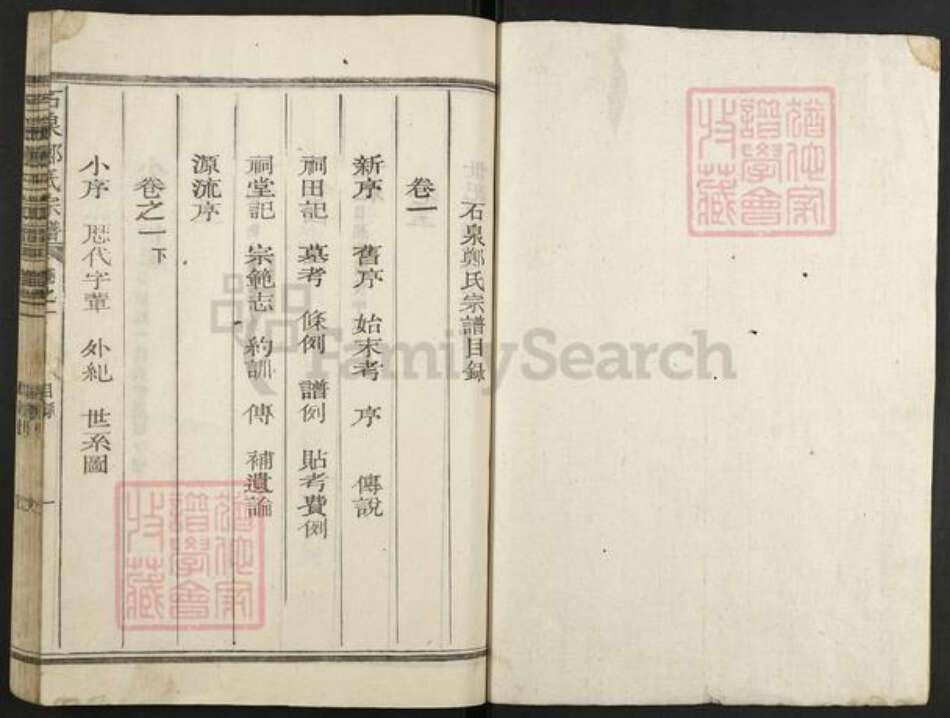 石泉鄭氏宗譜目錄
卷一
新序 舊序 始末考 序 傳說
祠田記 墓考 條例 譜例 貼考費例
祠堂記 宗範志 約訓 傳 補遺論
源流序
卷之一下
小序 歷代字輩 外紀 世系圖
石泉鄭氏宗譜 卷之一 目錄 一
譜學會
收藏
譜學會
收藏
FamilySearch